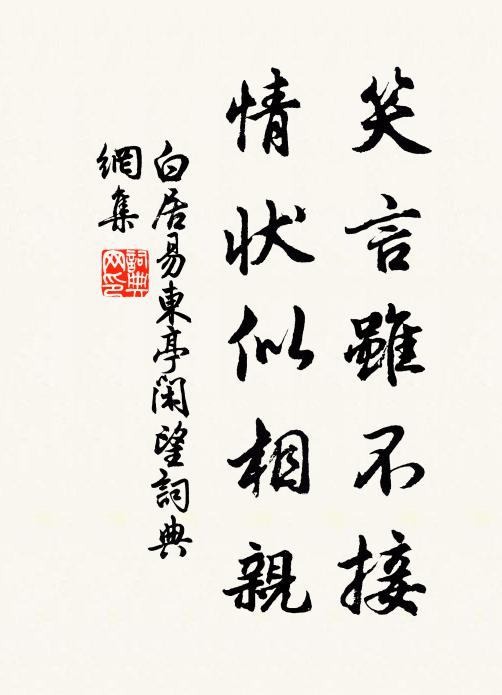 笑言雖不接
情状似相親
白居易東亭閑望詞典
網集
詞典
网印